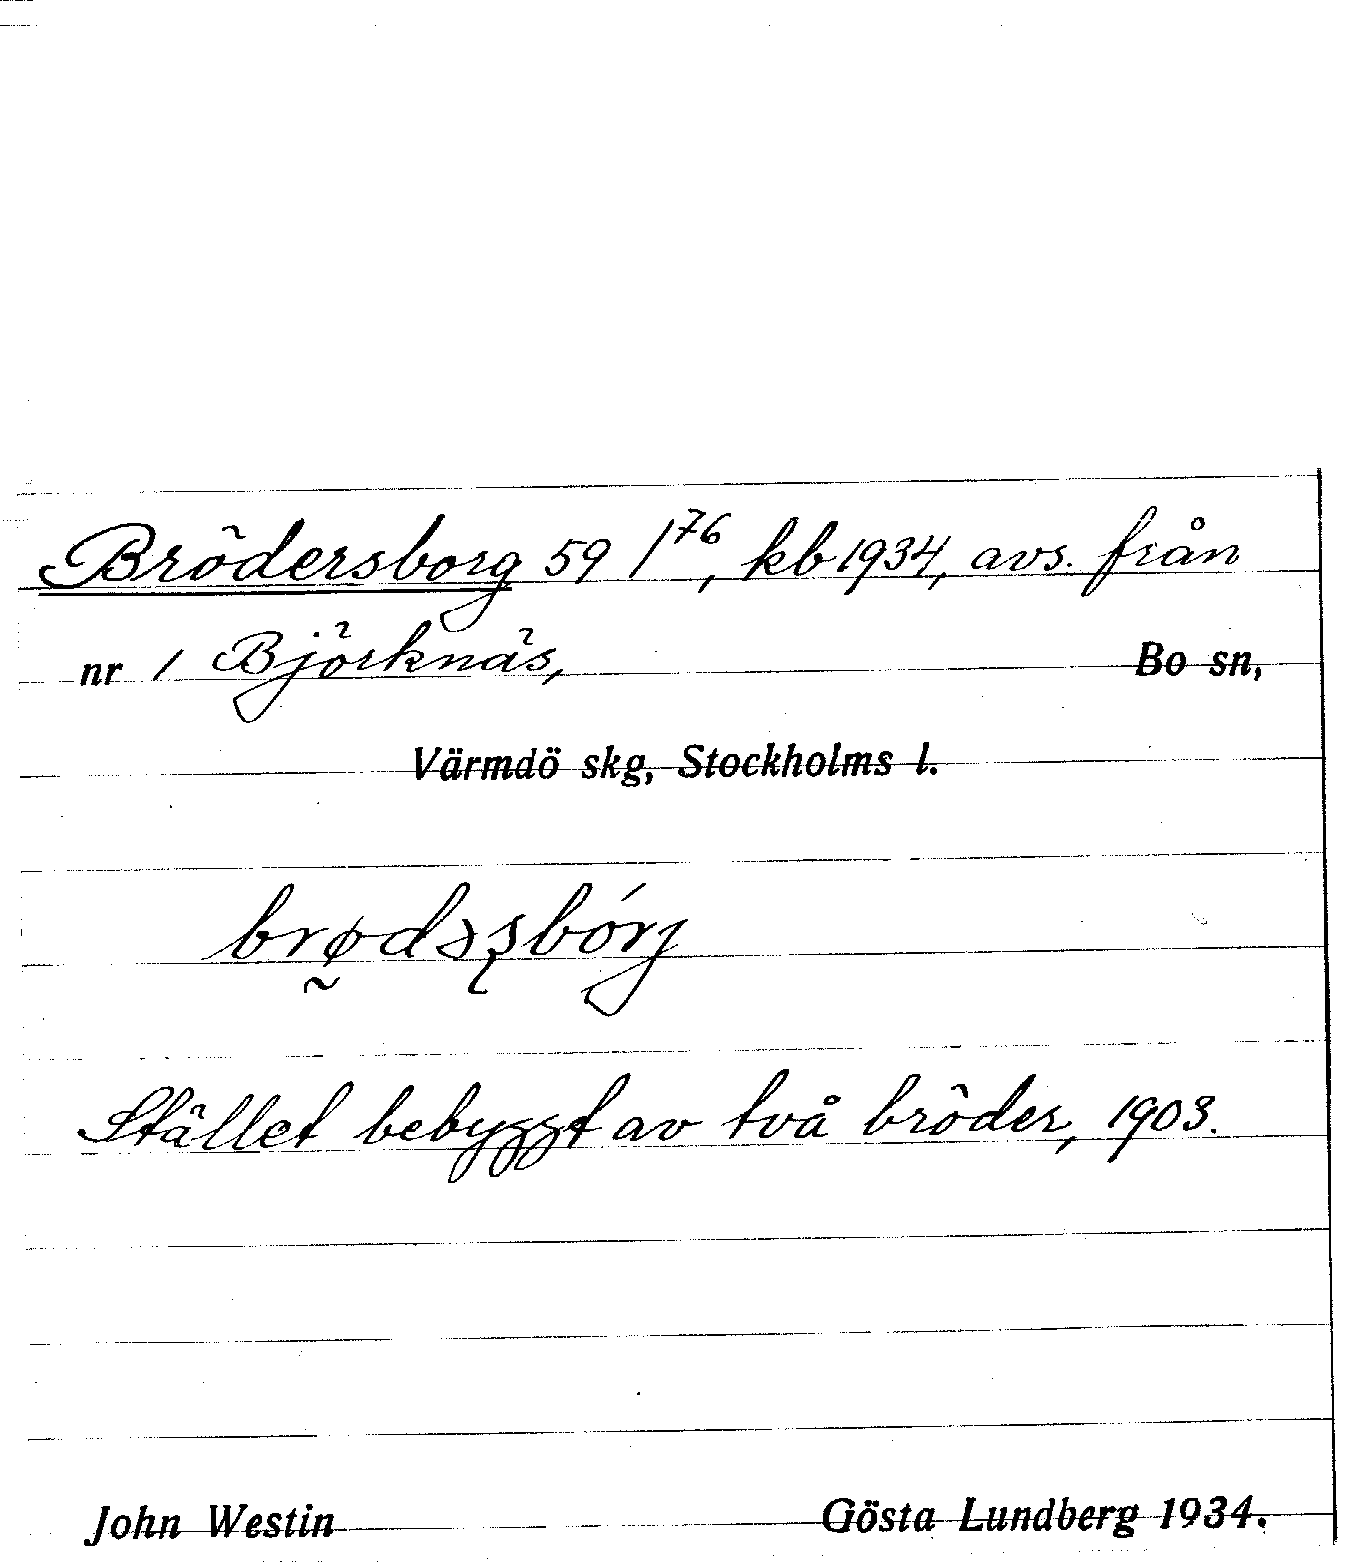 Brödersborg 59 /⁷⁶, kb 1934, avs. från
nr 1 Björknäs, Bo sn,
Värmdö skg, Stockholms l.
brø̰dəʂbórj
Stället bebyggt av två bröder, 1903.
John Westin Gösta Lundberg 1934.